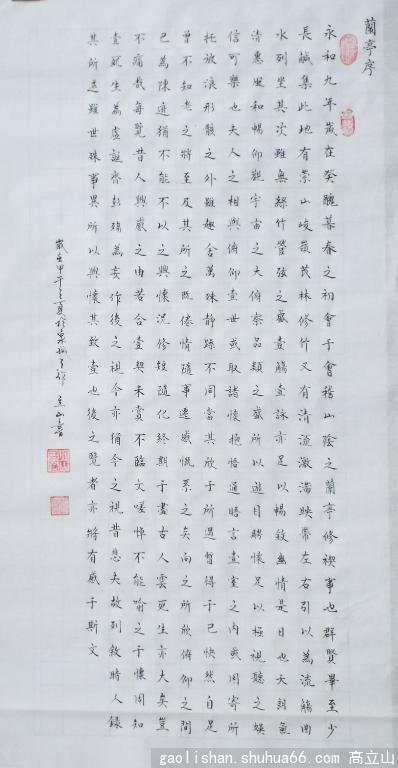 蘭亭序
永和九年歲在癸醜暮春之初會于會稽山陰之蘭亭修禊事也群賢畢至少
長鹹集此地有崇山峻嶺茂林修竹又有清流激湍映帶左右引以為流觴曲
水列坐其次雖無絲竹管弦之盛壹觴壹詠亦足以暢敘幽情是日也天朗氣
清惠風和暢仰觀宇宙之大俯察品類之盛所以遊目騁懷足以極視聽之娛
信可樂也夫人之相與俯仰壹世或取諸懷抱悟通晤言壹室之內或因寄所
托放浪形骸之外雖趣舍萬殊靜躁不同當其欣于所遇暫得于己快然自足
曾不知老之將至及其所之既倦情隨事遷感慨系之矣向之所欣俯仰之間
已為陳迹猶不能不以之興懷況修短隨化終期于盡古人雲死生亦大矣豈
不痛哉每覽昔人興感之由若合壹契未嘗不臨文嗟悼不能喻之于懷固知
壹死生為虛誕齊彭殤為妄作後之視今亦猶今之視昔悲夫故列敘時人錄
其所述雖世殊事異所以興懷其致壹也後之覽者亦將有感于斯文
歲在甲午之夏於泉 立山書
gaolishan.shuhua66.com 高立山